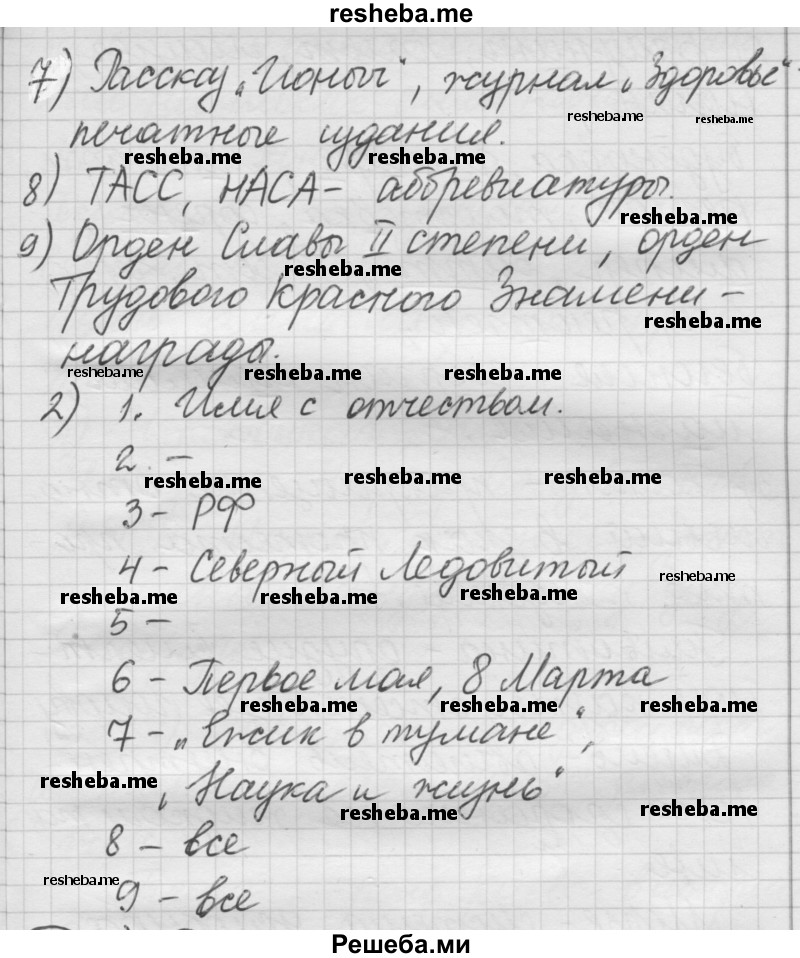 resheba.me
7) Рассказ „Ионыч“, журнал „Здоровье“-
resheba.me resheba.me
печатные издания.
resheba.me resheba.me
8) ТАСС, НАСА- аббревиатуры.
resheba.me
9) Орден Славы II степени, орден
resheba.me
Трудового Красного Знамени -
resheba.me
награды.
resheba.me resheba.me resheba.me
2) 1. Имя с отчеством.
2. -
resheba.me resheba.me resheba.me
3 - РФ
4 - Северный Ледовитый
resheba.me
resheba.me resheba.me resheba.me
5 -
6 - Первое мая, 8 Марта
resheba.me resheba.me resheba.me
7 - „Ежик в тумане“,
„Наука и жизнь“
resheba.me
resheba.me resheba.me
8 - все
resheba.me
9 - все
Решеба.ми